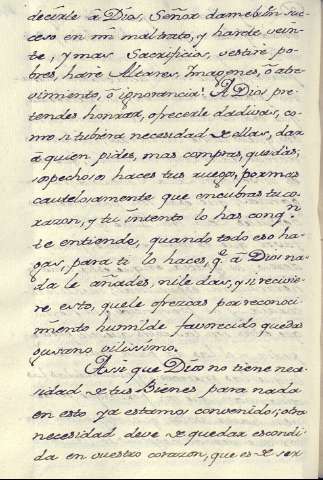 decirle â Dios, Señor dame bûn suc-
ceso en mi mal trato, y harête vein-
te, y mas Sacrificios, vestirê po-
bres, harê Altares, Imagenes, ô atre-
vimiento, ô ignorancia! A Dios pre-
tendes honrar, ofrecerle dadivas, co-
mo si tubiera necesidad de ellas, dar
â quien pides, mas compras, que dâs;
sospechoso haces tu ruego, por mas
cautelosamente que encubras tu co-
razon, y tu intento lo has con qn.
te entiende, quando todo eso ha-
gas, para ti lo haces, q.e â Dios na-
da le añades, ni le das, y si recivie-
re esto, que le ofrezcas por reconoci-
miento humilde favorecido quedas
gusano vilissimo.
Assi que Dios no tiene nece-
sidad de tus Bienes para nada
en esto ya estamos convenidos; otra
necesidad deve de quedar escondi-
da en vuestro corazon, que es de ser